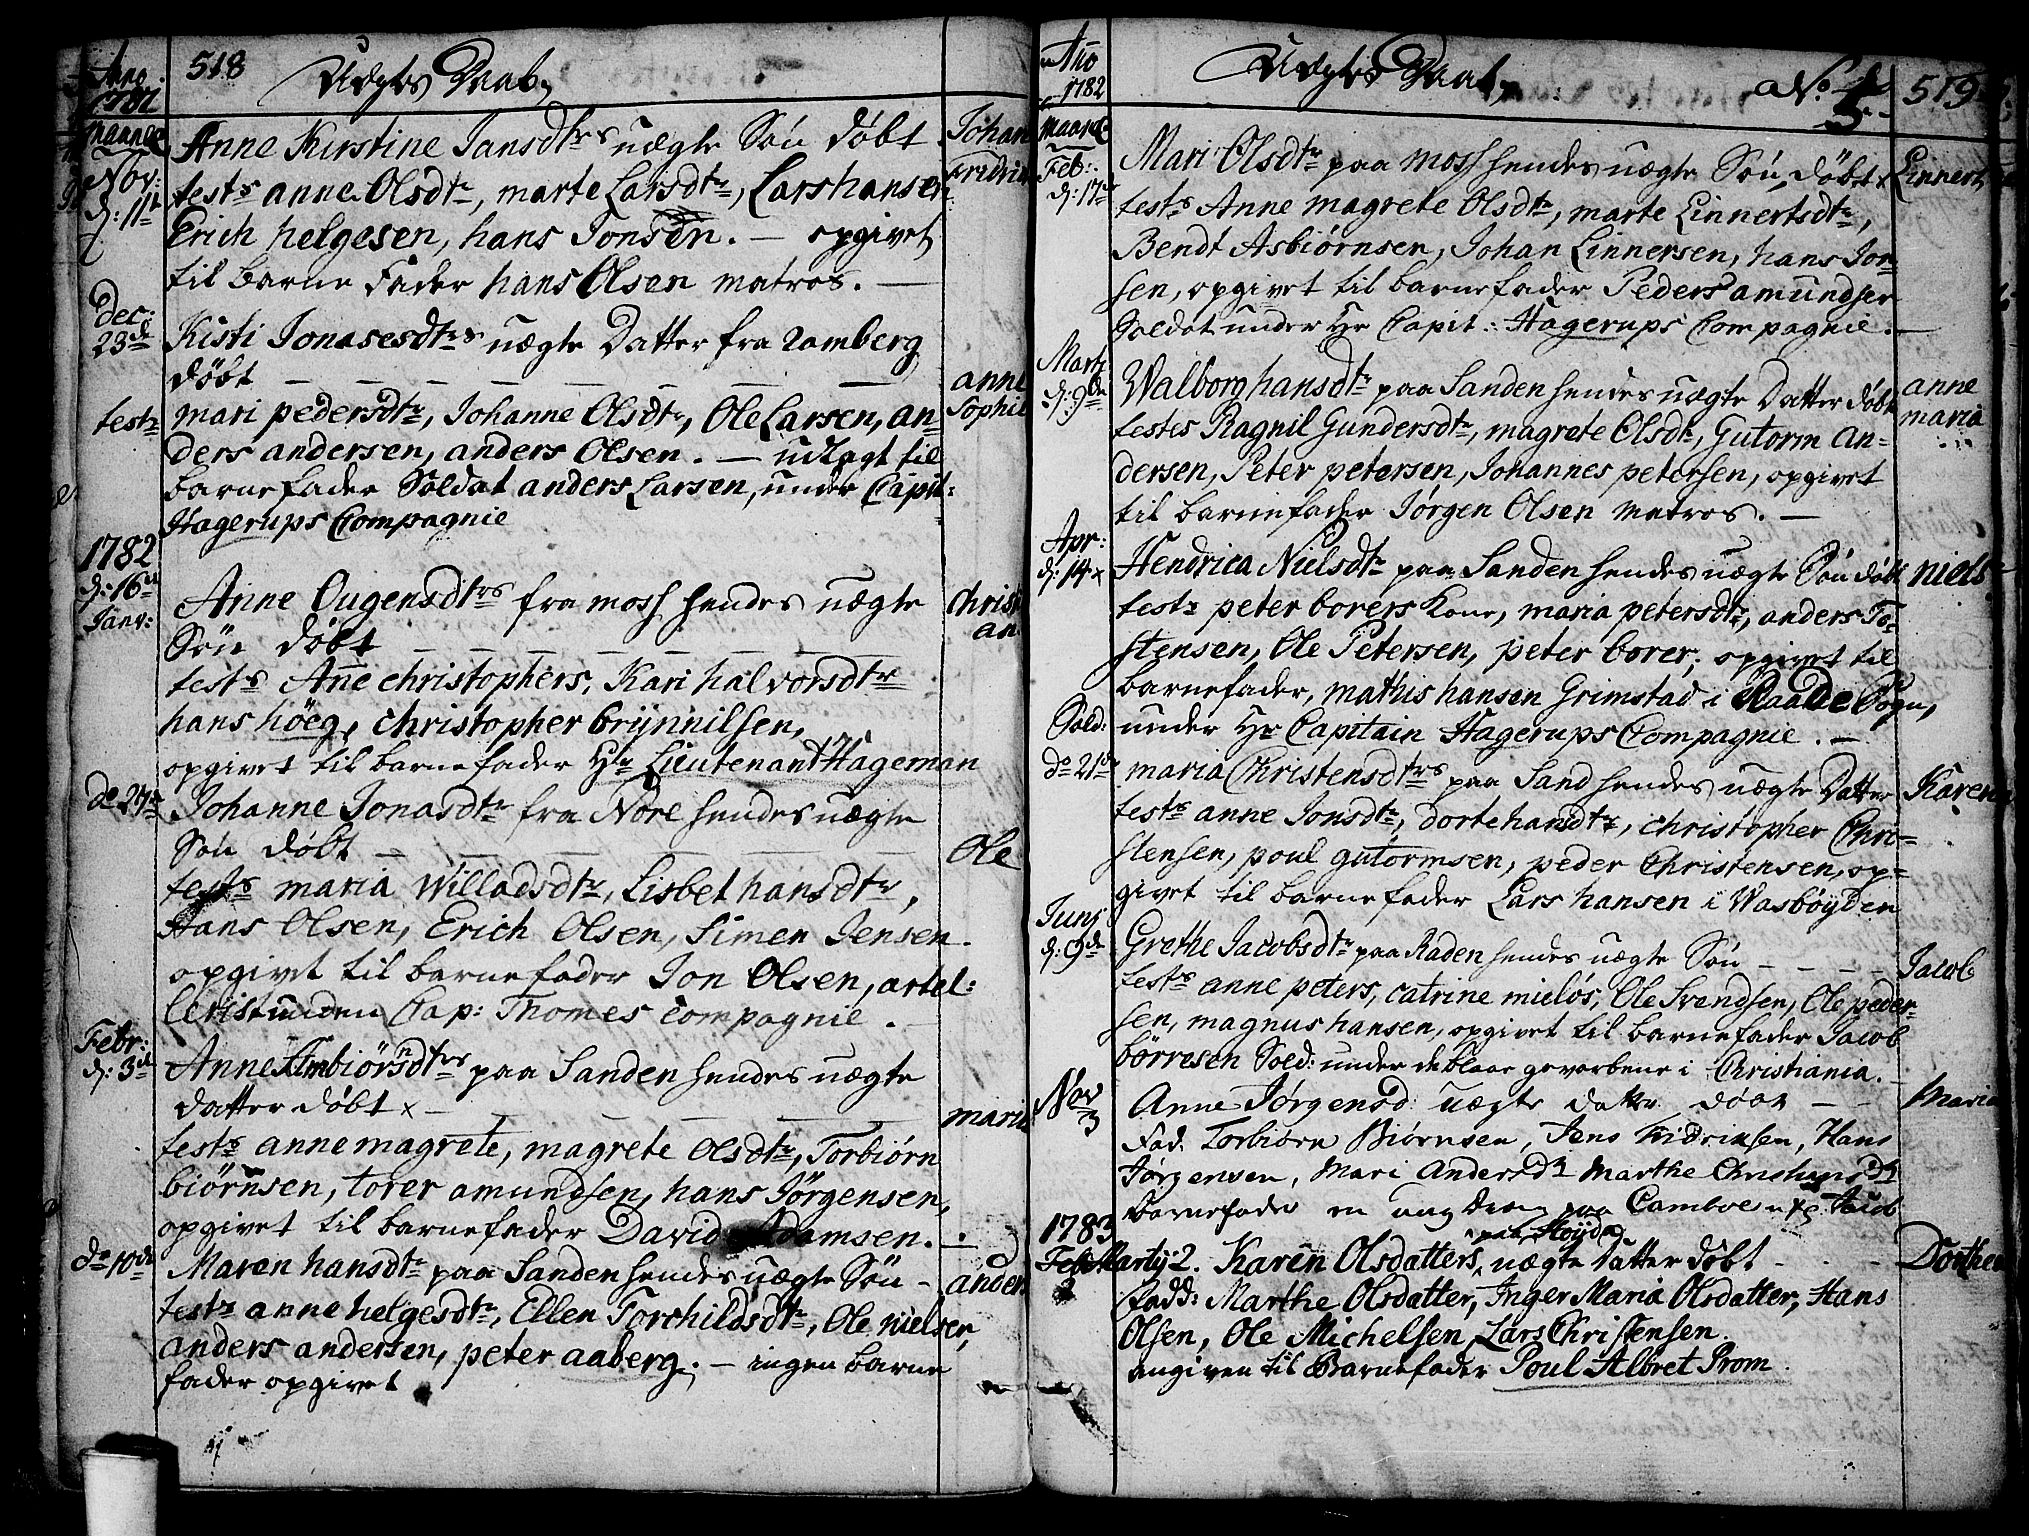 Anno 1781
518
Uægte Daab,
Anne Kirstine Jansdtrs uægte Søn døbt
Johan Fridrich
Nov: d: 11te
testes anne Olsdtr, marte Larsdtr, Lars hansen
Erich helgesen, hans Jonsen. — opgivet
til Barne Fader hans Olsen matros. —
Dec: 23de
Kisti Jonasesdtrs uægte Datter fra ramberg
døbt — — — — —
anne Sophie
testes
mari pedersdtr, Johanne Olsdtr, Ole Larsen, an-
ders andersen, anders Olsen. — udlagt til
barnefader Soldat anders Larsen, under Capit:
Hagerups Compagnie
1782
d: 16de Janv:
Anne Ougensdtrs fra moss hendes uægte
Søn døbt — — — — —
christian
tests Anne christophers, Kari halvorsdtr
hans höeg, christopher brÿnnilsen,
opgivet til barnefader Hr Lieutenant v: Hageman
do 27de
Johanne Jonasdtr fra Nore hendes uægte
Søn døbt — — — —
Ole
tests maria Willadsdtr, Lisbet hansdtr,
Hans Olsen, Erich Olsen, Simen Jensen.
opgivet til barnefader Jon Olsen, artel:
lerist unden Cap: Thomes Compagnie.
Febr: d: 3de
Anne Ambiörnsdtrs paa Sanden hendes uægte
datter døbt x — — — —
maria
tests anne magrete, magrete Olsdtr, Torbiørn
biörnsen, torer amundsen, hans Jörgensen,
opgivet til barnefader David Adamsen. —
do 10de
Maren hansdtr paa Sanden hendes uægte Søn -
anders
tests anne helgesdtr, Ellen Torchildsdtr, Ole nielsen,
anders andersen, peter aaberg. — ingen barne
fader opgivet
Ao 1782
Uægte Daab,
No. 5
519
Feb: d: 17de
Mari Olsdtr paa moss hendes uægte Søn døbt x
Linnert
tests Anne magrete Olsdtr, marte Linnertsdtr,
Bendt Asbiørnsen, Johan Linnersen, hans Jor-
sen, opgivet til barnefader Peder amundsen
Soldat under Hr Capit: Hagerups Compagnie. —
Martj d: 9de
Walborg hansdtr paa Sanden hendes uægte Datter døbt
anne maria
testes Ragnil Gundersdtr, magrete Olsdtr, Gutorm an-
dersen, Peter petersen, Johannes petersen, opgivet
til barnefader Jørgen Olsen matros. —
Apr: d: 14 x
Hendrica Nielsdtr paa Sanden hendes uægte Søn døbt
niels
tests peter borers Kone, maria petersdtr, anders To-
stensen, Ole Petersen, peter borer, opgivet til
barnefader, mathis hansen Grimstad i Raade Sogn,
Sold:
under Hr Capitain Hagerups Compagnie. —
do 21de
maria Christensdtrs paa Sand hendes uægte Datter
Karen
tests anne Jonsdtr, dorte hansdtr, christopher Chri-
stensen, poul gutormsen, peder Christensen, op-
givet til barnefader Lars hansen i Wasbøyden
Junj d: 9de
Grethe Jacobsdtr paa Raden hendes uægte Søn - - - -
Jacob
tests anne peters, catrine mielös, Ole Svendsen, Ole peder-
sen, magnus hansen, opgivet til barnefader Jacob
börresen Sold: under de blaae gevorbene i Christiania. —
Nov 3
Anne Jørgensd: uægte datter døbt — —
Maria
Fad. Torbiørn Biørnsen, Jens Fridrichsen, Hans
Jørgensen, Mari Andersdr Marthe Christensdr
barnefader en ung dreng paa
1783
Martij 2. Karen Olsdatters, paa Høyden uægte datter døbt - - -
Dorthea
Fadd: Marthe Olsdatter, Inger Maria Olsdatter, Hans
Olsen, Ole Michelsen, Lars Christensen.
angiven til Barnefader Poul Albret Prom.